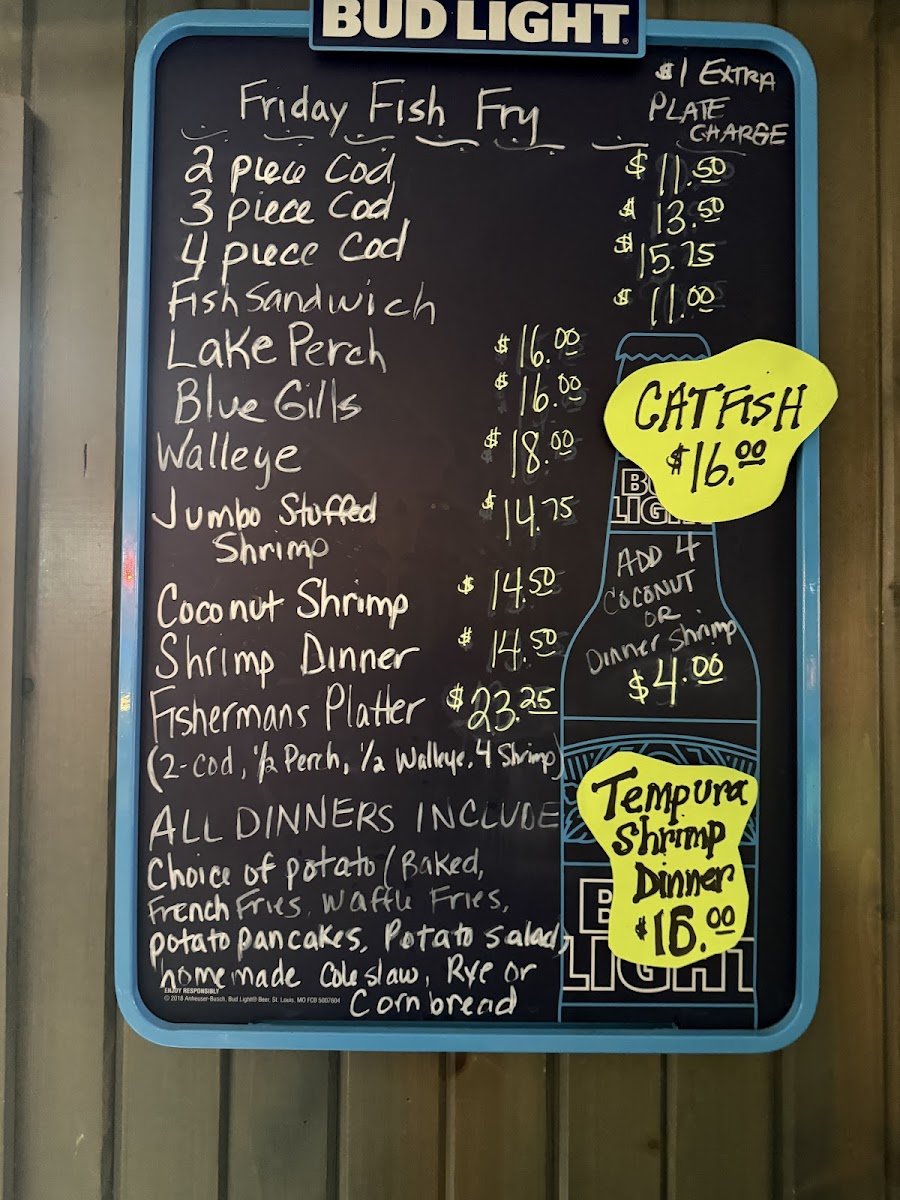 BUD LIGHT
$1 EXTRA
PLATE
CHARGE
Friday Fish Fry
2 piece Cod $11.50
3 piece Cod $13.50
4 piece Cod $15.75
Fish Sandwich $11.00
Lake Perch $16.00
Blue Gills $16.00
Walleye $18.00
Jumbo Stuffed $14.75
Shrimp
Coconut Shrimp $14.50
Shrimp Dinner $14.50
Fishermans Platter $23.25
(2-Cod, 1/2 Perch, 1/2 Walleye, 4 Shrimp)
ALL DINNERS INCLUDE
Choice of potato (Baked,
French Fries, Waffle Fries,
potato pancakes, Potato salad,
homemade Coleslaw, Rye or
Cornbread
CATFISH
$16.00
LIGHT
ADD 4
COCONUT
OR
Dinner Shrimp
$4.00
Tempura
Shrimp
Dinner
LIGHT
ENJOY RESPONSIBLY
© 2018 Anheuser-Busch, Bud Light® Beer, St. Louis, MO